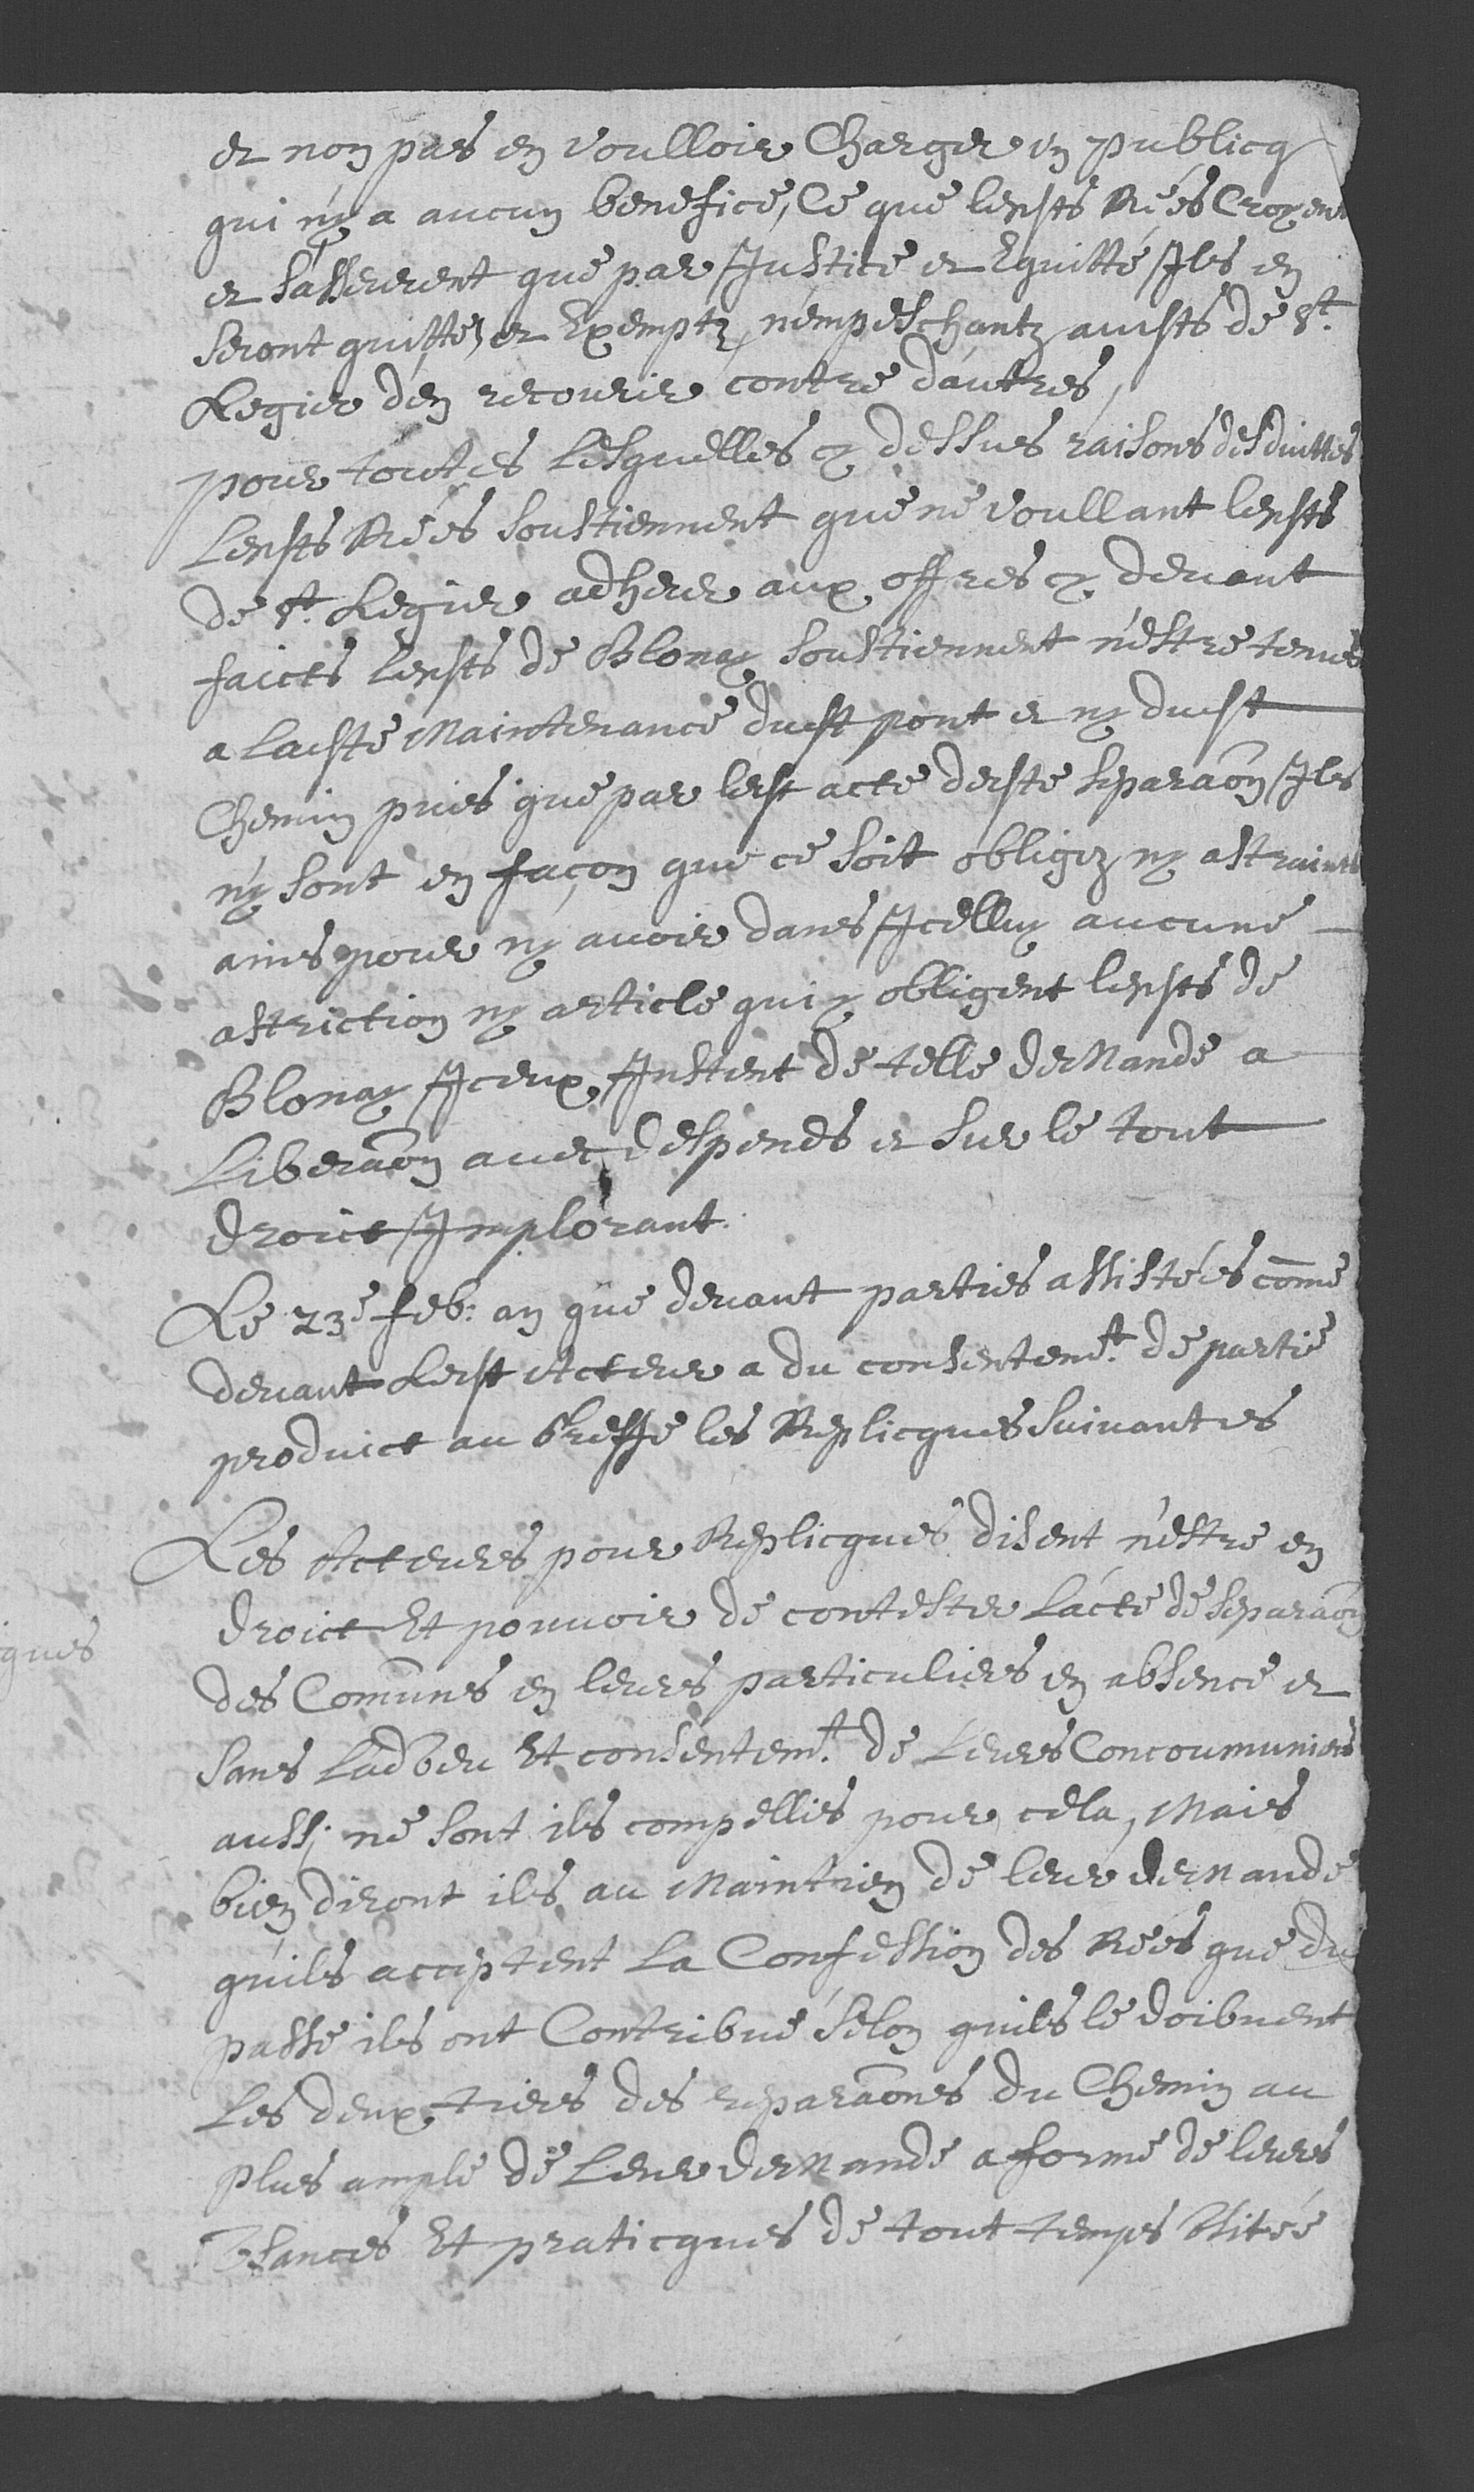 et non pas en voulloir Charger un publicq
qui n'y a aucun benefice, Ce que lesdts Rées Croyent
et s'asseurent que par Justice et Equitté Ils en
seront quittes et Exemptz, n'empeschantz ausdts de St.
Legier d'en recourir contre d'autres,
pour toutes lesquelles cy dessus raisons desduittes
Lesdts Rées soustiennent que ne voullant lesdts
de St. Legier adherer aux offres cy devant
faictes lesdts de Blonay soustiennent n'estre tenus
a ladte Maintenance dudt pont et ny dudt
Chemin puis que par ledt acte dedte separaõn Ils
n'y sont en façon que ce soit obligez ny astraints
ains pour n'y avoir dans Icelluy aucune
astriction ny article qui y obligent lesdts de
Blonay Iceux Instent de telle demande a
Liberaõn avec despends et sur le tout
droict Implorant.
Le 23e feb: an que devant parties assistées cõme
devant Ledt Acteur a du consentemt. de partie
produict au Greffe les Replicques suivantes
Les Acteurs pour Replicques disent n'estre en
droict Et pouvoir de contester L'acte de Separaõn
des Comũnes en leurs particuliers en absence et
sans L'adveu Et consentemt. de Leurs Concoumuniers
aussi ne sont ils compellis pour cela, Mais
bien diront ils au Maintien de leur demande
qu'ils acceptent La Confession des Rées que du
passé ils ont Contribué selon qu'ils le doibvent
Les deux tiers des reparaõns du Chemin au
plus ample de Leur demande a forme de leurs
Usances Et praticques de tout temps Usitée
ques